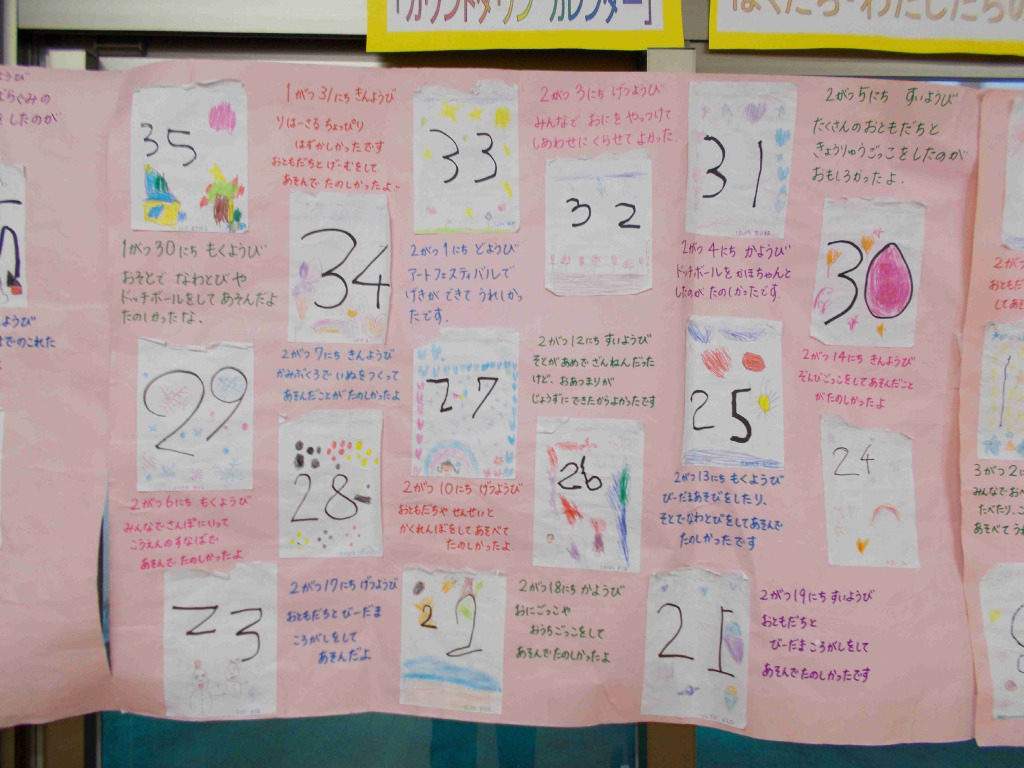 「カウントダウン カレンダー」
ぼくたち・わたしたちの
35
1がつ30にち もくようび
おそとで なわとびや
ドッチボールをして あそんだよ
たのしかったな.
1がつ31にち きんようび
りはーさる ちょっぴり
はずかしかったです
おともだちと げーむをして
あそんで たのしかったよ.
34
33
2がつ1にち どようび
アートフェスティバルで
げきが できて うれしかっ
たです.
2がつ3にち げつようび
みんなで おにを やっつけて
しあわせに くらせて よかった.
32
31
2がつ4にち かようび
ドッチボールを かほちゃんと
したのが たのしかったです.
2がつ5にち すいようび
たくさんの おともだちと
きょうりゅうごっこを したのが
おもしろかったよ.
30
29
2がつ6にち もくようび
みんなで さんぽにいって
こうえんの すなばで
あそんで たのしかったよ
2がつ7にち きんようび
かみぶくろで いぬを つくって
あそんだことが たのしかったよ
28
27
2がつ10にち げつようび
おともだちや せんせいと
かくれんぼをして あそべて
たのしかったよ
2がつ12にち すいようび
そとが あめで ざんねんだった
けど、おあつまりが
じょうずに できたから よかったです
26
25
2がつ13にち もくようび
びーだまあそびをしたり、
そとで なわとびをして あそんで
たのしかったです
2がつ14にち きんようび
ぞんびごっこをして あそんだこと
が たのしかったよ
24
23
2がつ17にち げつようび
おともだちと びーだま
ころがしをして
あそんだよ
22
2がつ18にち かようび
おにごっこや
おうちごっこをして
あそんで たのしかったよ
21
2がつ19にち すいようび
おともだちと
びーだま ころがしをして
あそんで たのしかったです